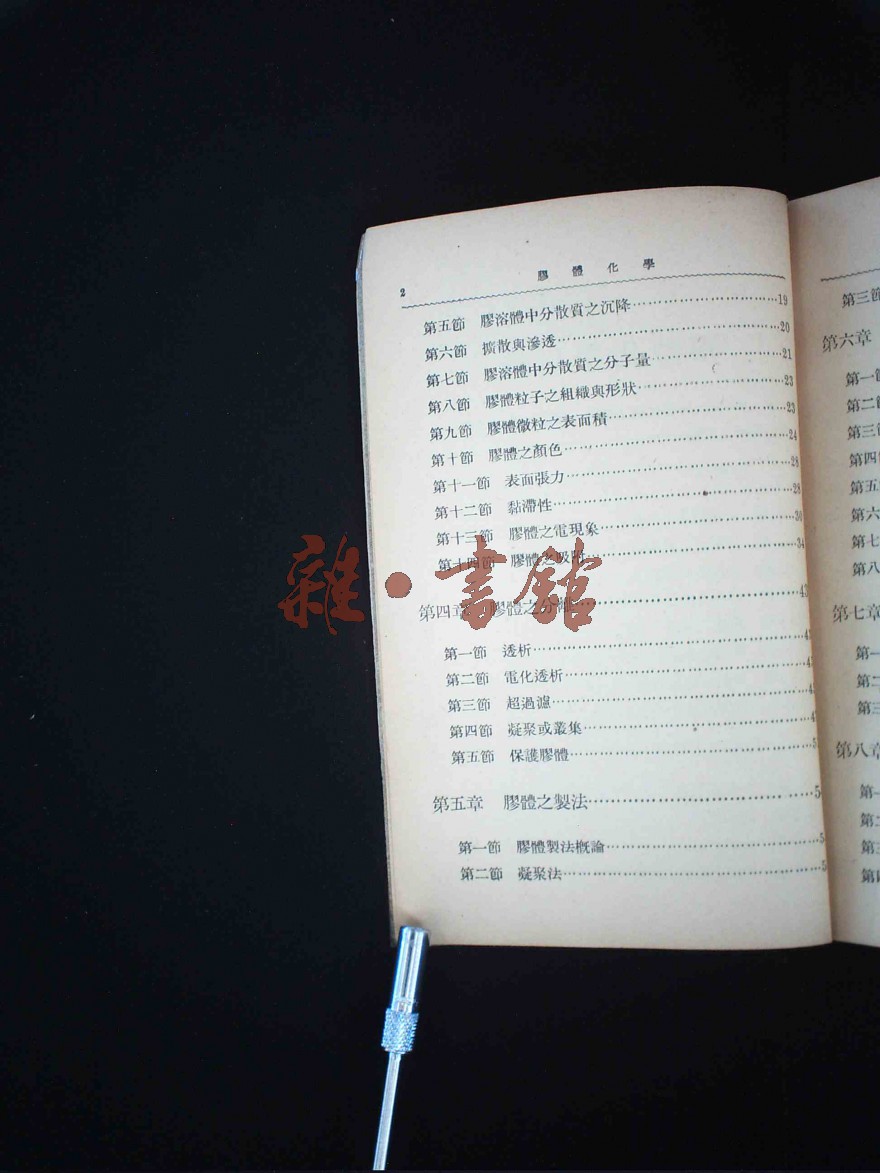 2 膠體化學
第五節 膠溶體中分散質之沉降…………19
第六節 擴散與滲透…………20
第七節 膠溶體中分散質之分子量…………21
第八節 膠體粒子之組織與形狀…………23
第九節 膠體微粒之表面積…………23
第十節 膠體之顏色…………24
第十一節 表面張力…………28
第十二節 黏滯性…………28
第十三節 膠體之電現象…………30
第十四節 膠體之吸附…………34
第四章 膠體之分離…………43
第一節 透析…………4
第二節 電化透析…………4
第三節 超過濾…………4
第四節 凝聚或叢集…………4
第五節 保護膠體…………5
第五章 膠體之製法…………5
第一節 膠體製法概論…………5
第二節 凝聚法…………5
雜·書館
第三節
第六章
第一節
第二節
第三節
第四節
第五
第六
第七
第八
第七章
第一
第二
第三
第八章
第一
第二
第三
第四